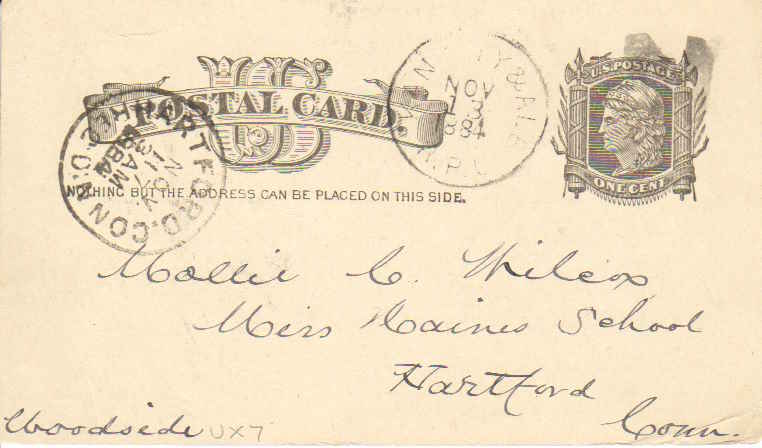 U.S. POSTAGE
US
POSTAL CARD.
NOV
13
884
HARTFORD.CON
NOV
AM
1884
C.D.
NOTHING BUT THE ADDRESS CAN BE PLACED ON THIS SIDE.
ONE CENT
Mollie C. Wilcox
Miss Haines School
Hartford
Conn.
Woodside UX7